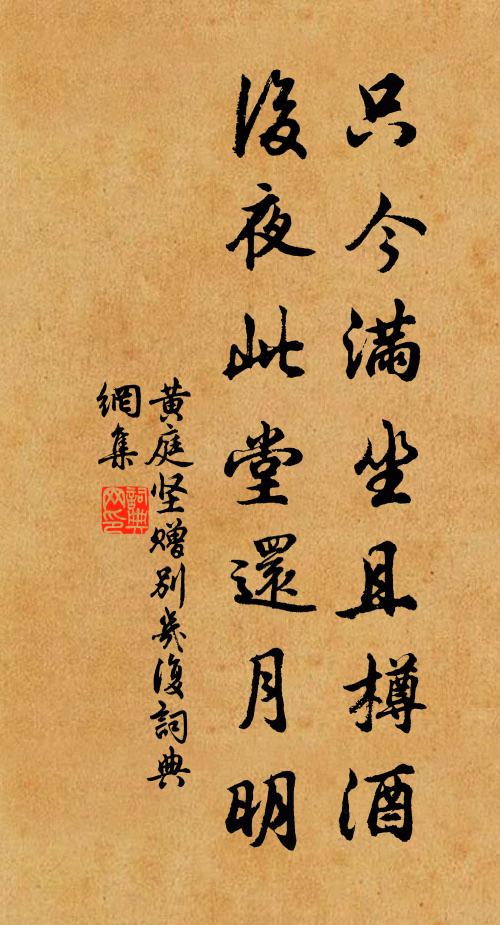 只今滿坐且樽酒
後夜此堂還月明
黄庭坚贈別幾復詞典
網集
詞典
网印